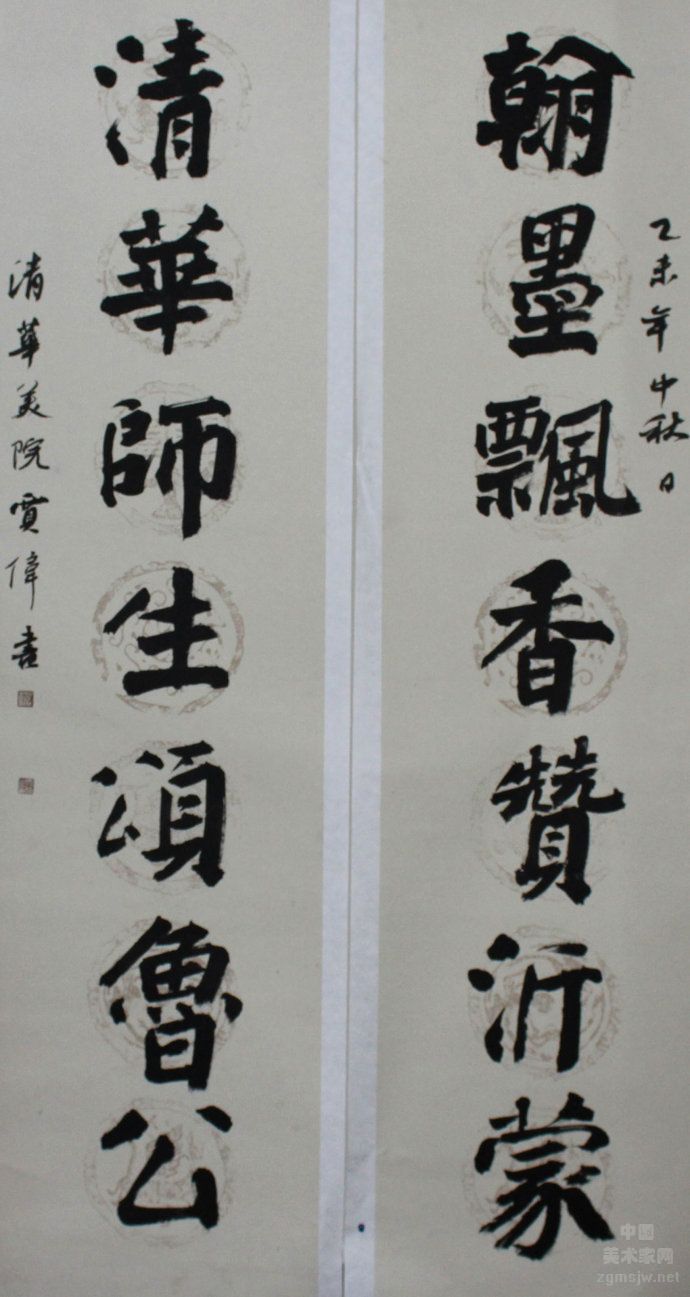 乙未年中秋日
翰墨飄香贊沂蒙
清華師生頌魯公
清華美院賈偉書
中國
美术家网
zgmsjw.net